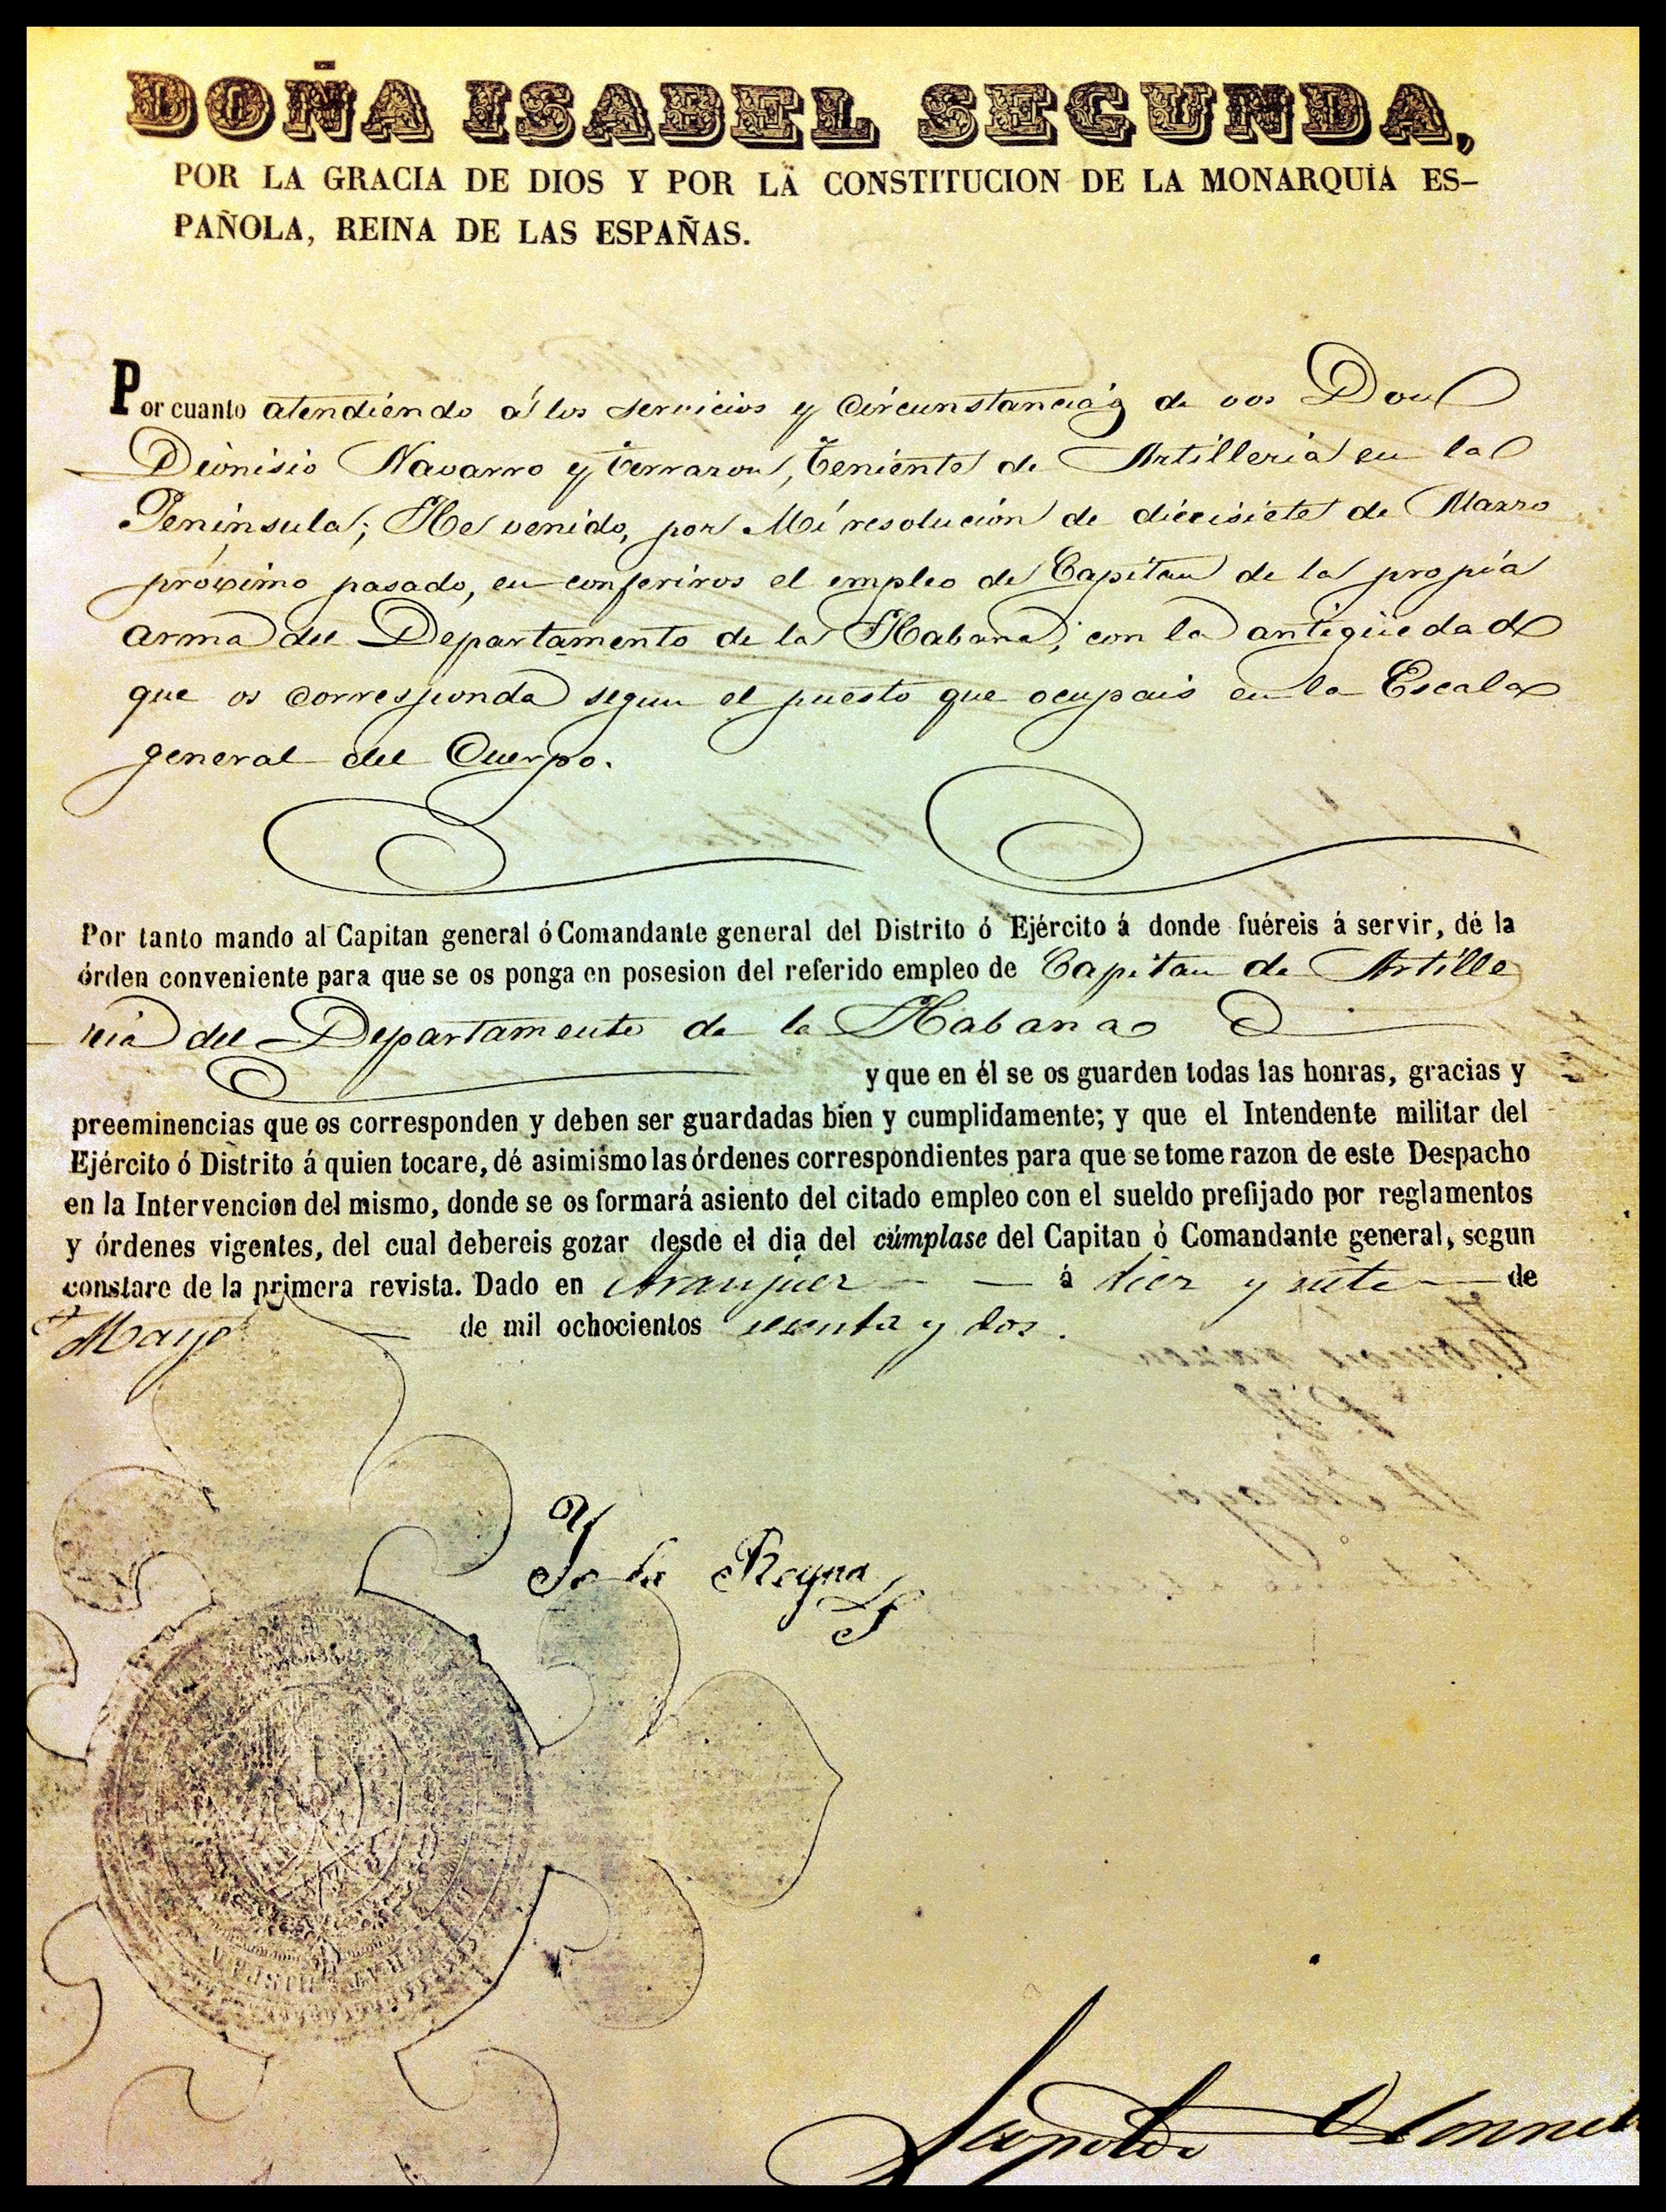 DOÑA ISABEL SEGUNDA,
POR LA GRACIA DE DIOS Y POR LA CONSTITUCION DE LA MONARQUIA ES-
PAÑOLA, REINA DE LAS ESPAÑAS.
Por cuanto atendiendo á los servicios y circunstancias de vos Don
Dionisio Navarro y Terrazon, Teniente de Artilleria en la
Península; He venido, por Mi resolucion de diecisiete de Marzo
próximo pasado, en conferiros el empleo de Capitan de la propia
arma del Departamento de la Habana, con la antigüedad
que os corresponda segun el puesto que ocupais en la Escala
general del Cuerpo.
Por tanto mando al Capitan general ó Comandante general del Distrito ó Ejército á donde fuéreis á servir, dé la
órden conveniente para que se os ponga en posesion del referido empleo de Capitan de Artille
ria del Departamento de la Habana
y que en él se os guarden todas las honras, gracias y
preeminencias que os corresponden y deben ser guardadas bien y cumplidamente; y que el Intendente militar del
Ejército ó Distrito á quien tocare, dé asimismo las órdenes correspondientes para que se tome razon de este Despacho
en la Intervencion del mismo, donde se os formará asiento del citado empleo con el sueldo prefijado por reglamentos
y órdenes vigentes, del cual debereis gozar desde el dia del cúmplase del Capitan ò Comandante general, segun
constare de la primera revista. Dado en Aranjuez á diez y siete de
Mayo de mil ochocientos sesenta y dos.
Yo la Reyna
Leopoldo O'Donnell